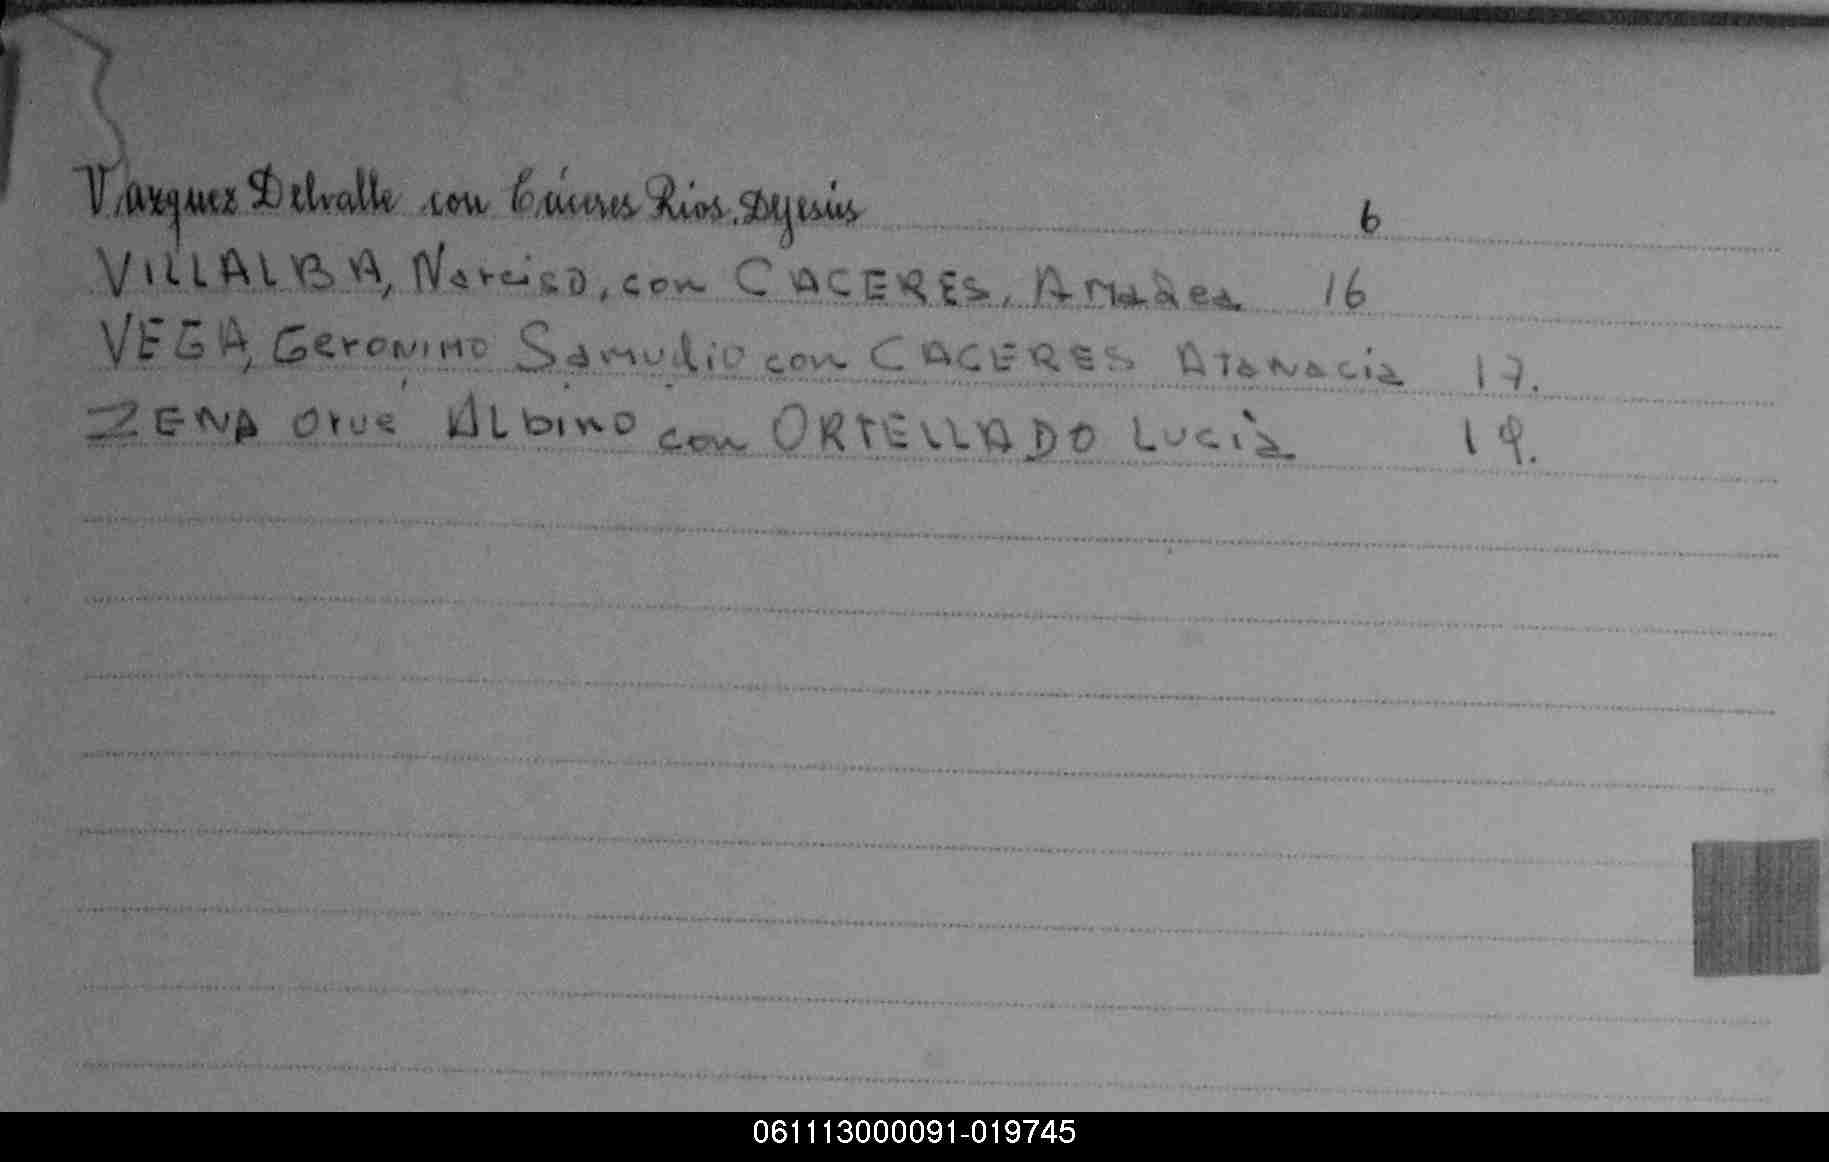 Vazquez Delvalle con Cáceres Rios, Dejesús 6
VILLALBA, Narciso, con CACERES, Amadea 16
VEGA, Geronimo Samudio con CACERES Atanacia 17.
ZENA Orué Albino con ORTELLADO Lucia 19.
061113000091-019745